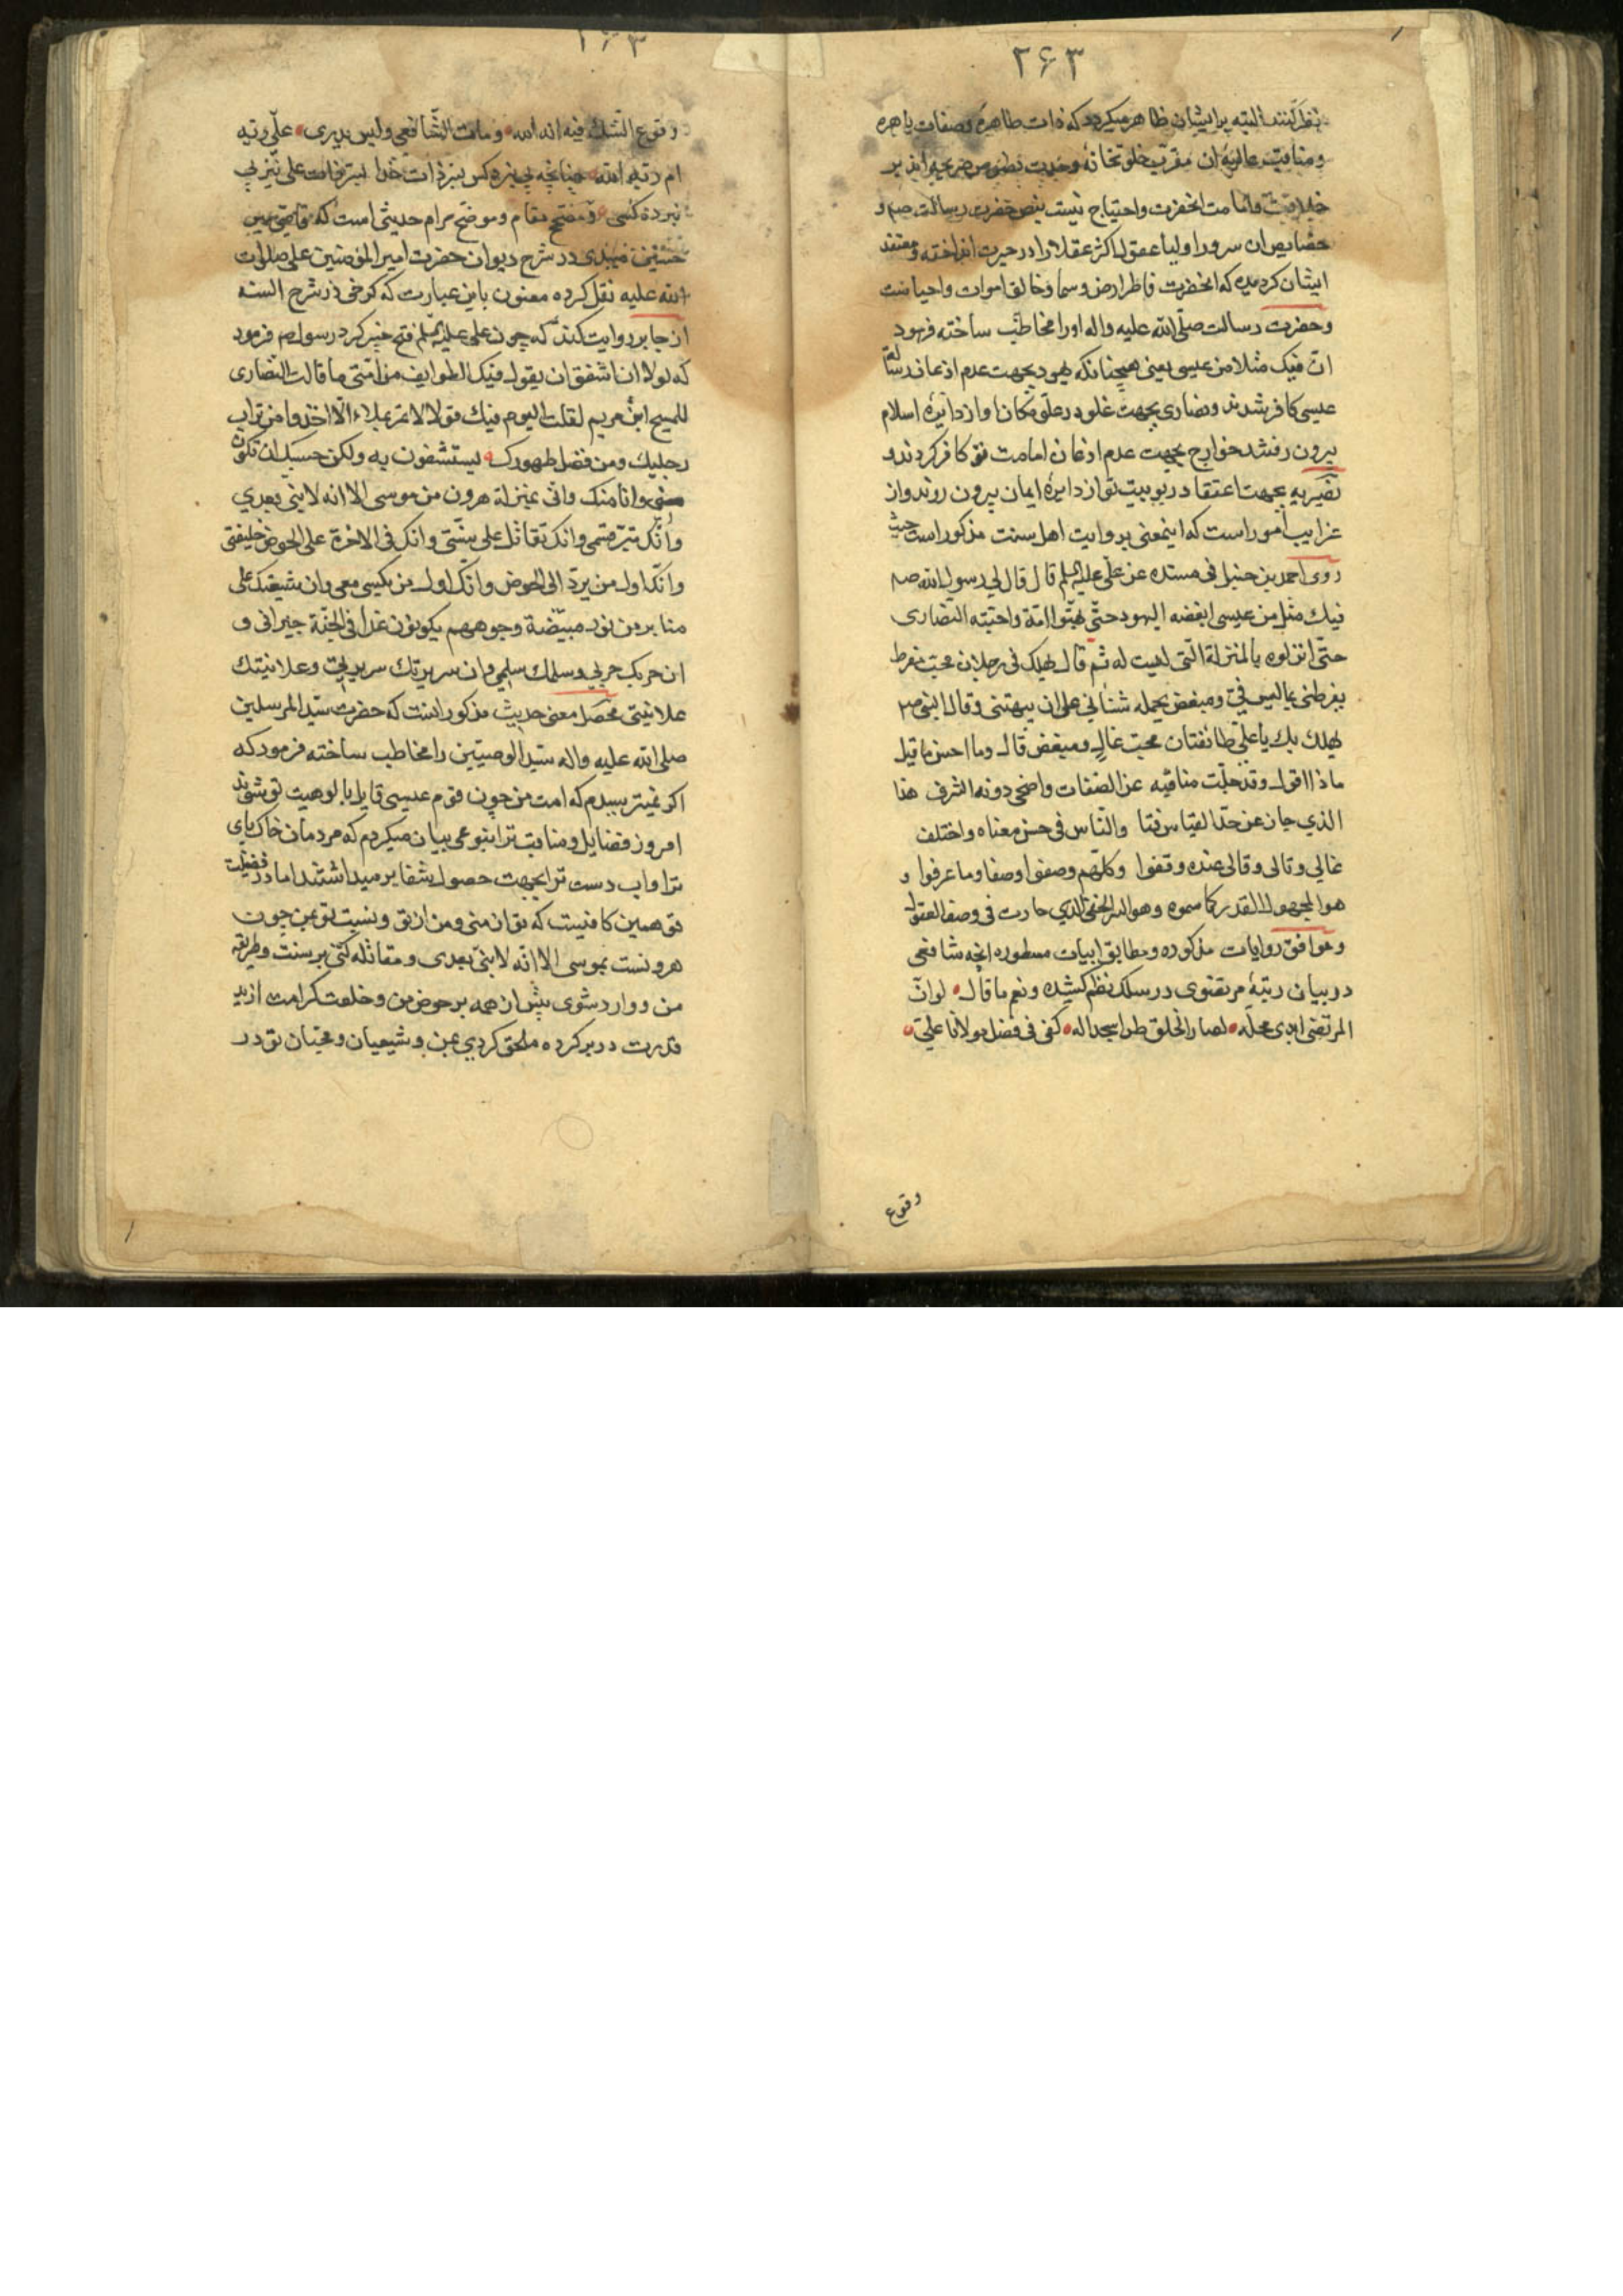 ۲۶۳
نظر کنند البته برایشان ظاهر میکردد که ذات طاهره و صفات باهره
و مناقب عالیهٔ ان مقرب خلوتخانهٔ وحدت
خلافت و امامت انحضرت و احتیاج نیست بنص حضرت رسالت صم و
خصایص ان سرور اولیا عقول اکثر عقلا را در حیرت انداخته و معتقد
ایشان کردیده که انحضرت فاطر ارض و سما و خالق اموات و احیا ست
و حضرت رسالت صلی الله علیه واله او را مخاطب ساخته فرمود
ان فیک مثلا من عیسی یعنی همچنانکه یهود بجهت عدم اذعان رسالة
عیسی کافر شدند و نصاری بجهت غلو در علو مکان او از دایرهٔ اسلام
بیرون رفتند خوارج بجهت عدم اذعان امامت تو کافر کردند و
نصیریه بجهت اعتقاد ربوبیت تو از دایرهٔ ایمان بیرون روند و از
غرایب امور است که اینمعنی بروایت اهل سنت مذکور است حیث
روی احمد بن حنبل فی مسنده عن علی علیه السلم قال قال لی رسول الله صم
فیک مثل من عیسی ابغضه الیهود حتی بهتوا امه و احبته النصاری
حتی انزلوه بالمنزلة التی لیست له ثم قال یهلک فی رجلان محب مفرط
یفرطنی بما لیس فی و مبغض یحمله شنانی علی ان یبهتنی و قال النبی صم
یهلک بک یا علی طائفتان محب غال و مبغض قال و ما احسن ما قیل
ماذا اقول و قد جلت مناقبه عن الصفات و اضحی دونه الشرف هذا
الذی جاز عن حد القیاس فتا والناس فی حسن معناه و اختلف
غالی و تالی و قالی عنده وقفوا و کلهم وصفوا وصفا و ما عرفوا و
هو المجهول القدر کما سموه و هو السر الخفی الذی حارت فی وصفه العقول
و موافق روایات مذکوره و مطابق ابیات مسطوره انچه شافعی
در بیان رتبهٔ مرتضوی در سلک نظم کشیده و نعم ما قال لو ان
المرتضی ابدی محله لصار الخلق طرا سجدا له کفی فی فضل مولانا علی
وقوع
۲۶۳
وقوع الشک فیه انه الله و مات الشافعی و لیس یدری علی ربه
ام ربه الله چنانچه
نبرده کسی و مفتح مقام و موضح مرام حدیثی است که قاضی میر
حسین میبدی در شرح دیوان حضرت امیر المؤمنین علی صلوات
الله علیه نقل کرده معنون باین عبارت که کوخی در شرح السنه
از جابر روایت کند که چون علی علیه السلم فتح خیبر کرد رسول صم فرمود
که لولا ان اشفق ان یقول فیک الطوایف من امتی ما قالت النصاری
للمسیح ابن مریم لقلت الیوم فیک قولا لا تمر بملاء الا اخذوا من تراب
رجلیک و من فضل طهورک یستشفون به و لکن حسبک ان تکون
منی و انا منک و انی بمنزلة هرون من موسی الا انه لا نبی بعدی
و انک تبرء ذمتی و انک تقاتل علی سنتی و انک فی الاخرة علی الحوض خلیفتی
و انک اول من یرد الی الحوض و انک اول من یکسی معی و ان شیعتک علی
منابر من نور مبیضة وجوههم یکونون غدا فی الجنة جیرانی و
ان حربک حربی و سلمک سلمی و ان سریرتک سریرتی و علانیتک
علانیتی محصل معنی حدیث مذکور اینست که حضرت سید المرسلین
صلی الله علیه واله سید الوصیین را مخاطب ساخته فرمود که
اکر نمیترسیدم که امت من چون قوم عیسی قایل بالوهیت تو شوند
امروز فضایل و مناقب ترا بنوعی بیان میکردم که مردمان خاک پای
ترا و اب دست ترا بجهت حصول شفا بر میداشتند اما در فضیلت
تو همین کافیست که تو از منی و من از تو و نسبت تو بمن چون
هرونست بموسی الا انه لا نبی بعدی و مقاتله کنی بر سنت و طریقه
من و وارد شوی پیش از همه بر حوض من و خلعت کرامت از ید
قدرت در بر کرده ملحق کردی بمن و شیعیان و محبان تو در